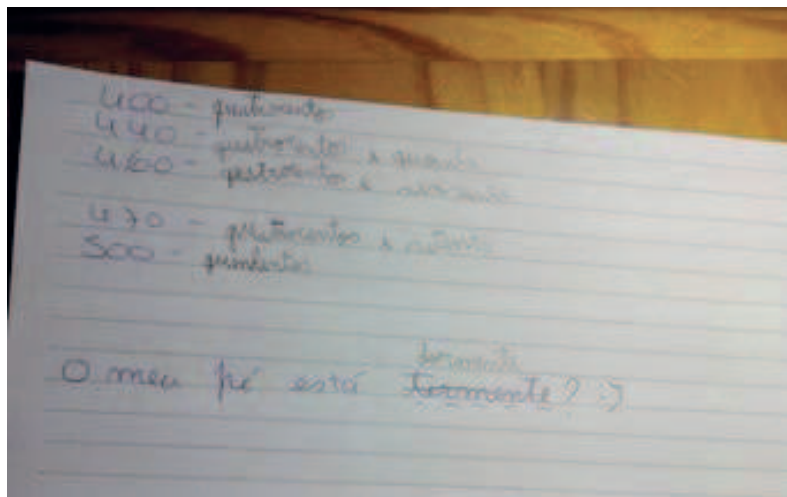 400 - quatrocentos
440 - quatrocentos e quarenta
460 - quatrocentos e sessenta
470 - quatrocentos e setenta
500 - quinhentos
dormente
O meu pé está tormente? :)